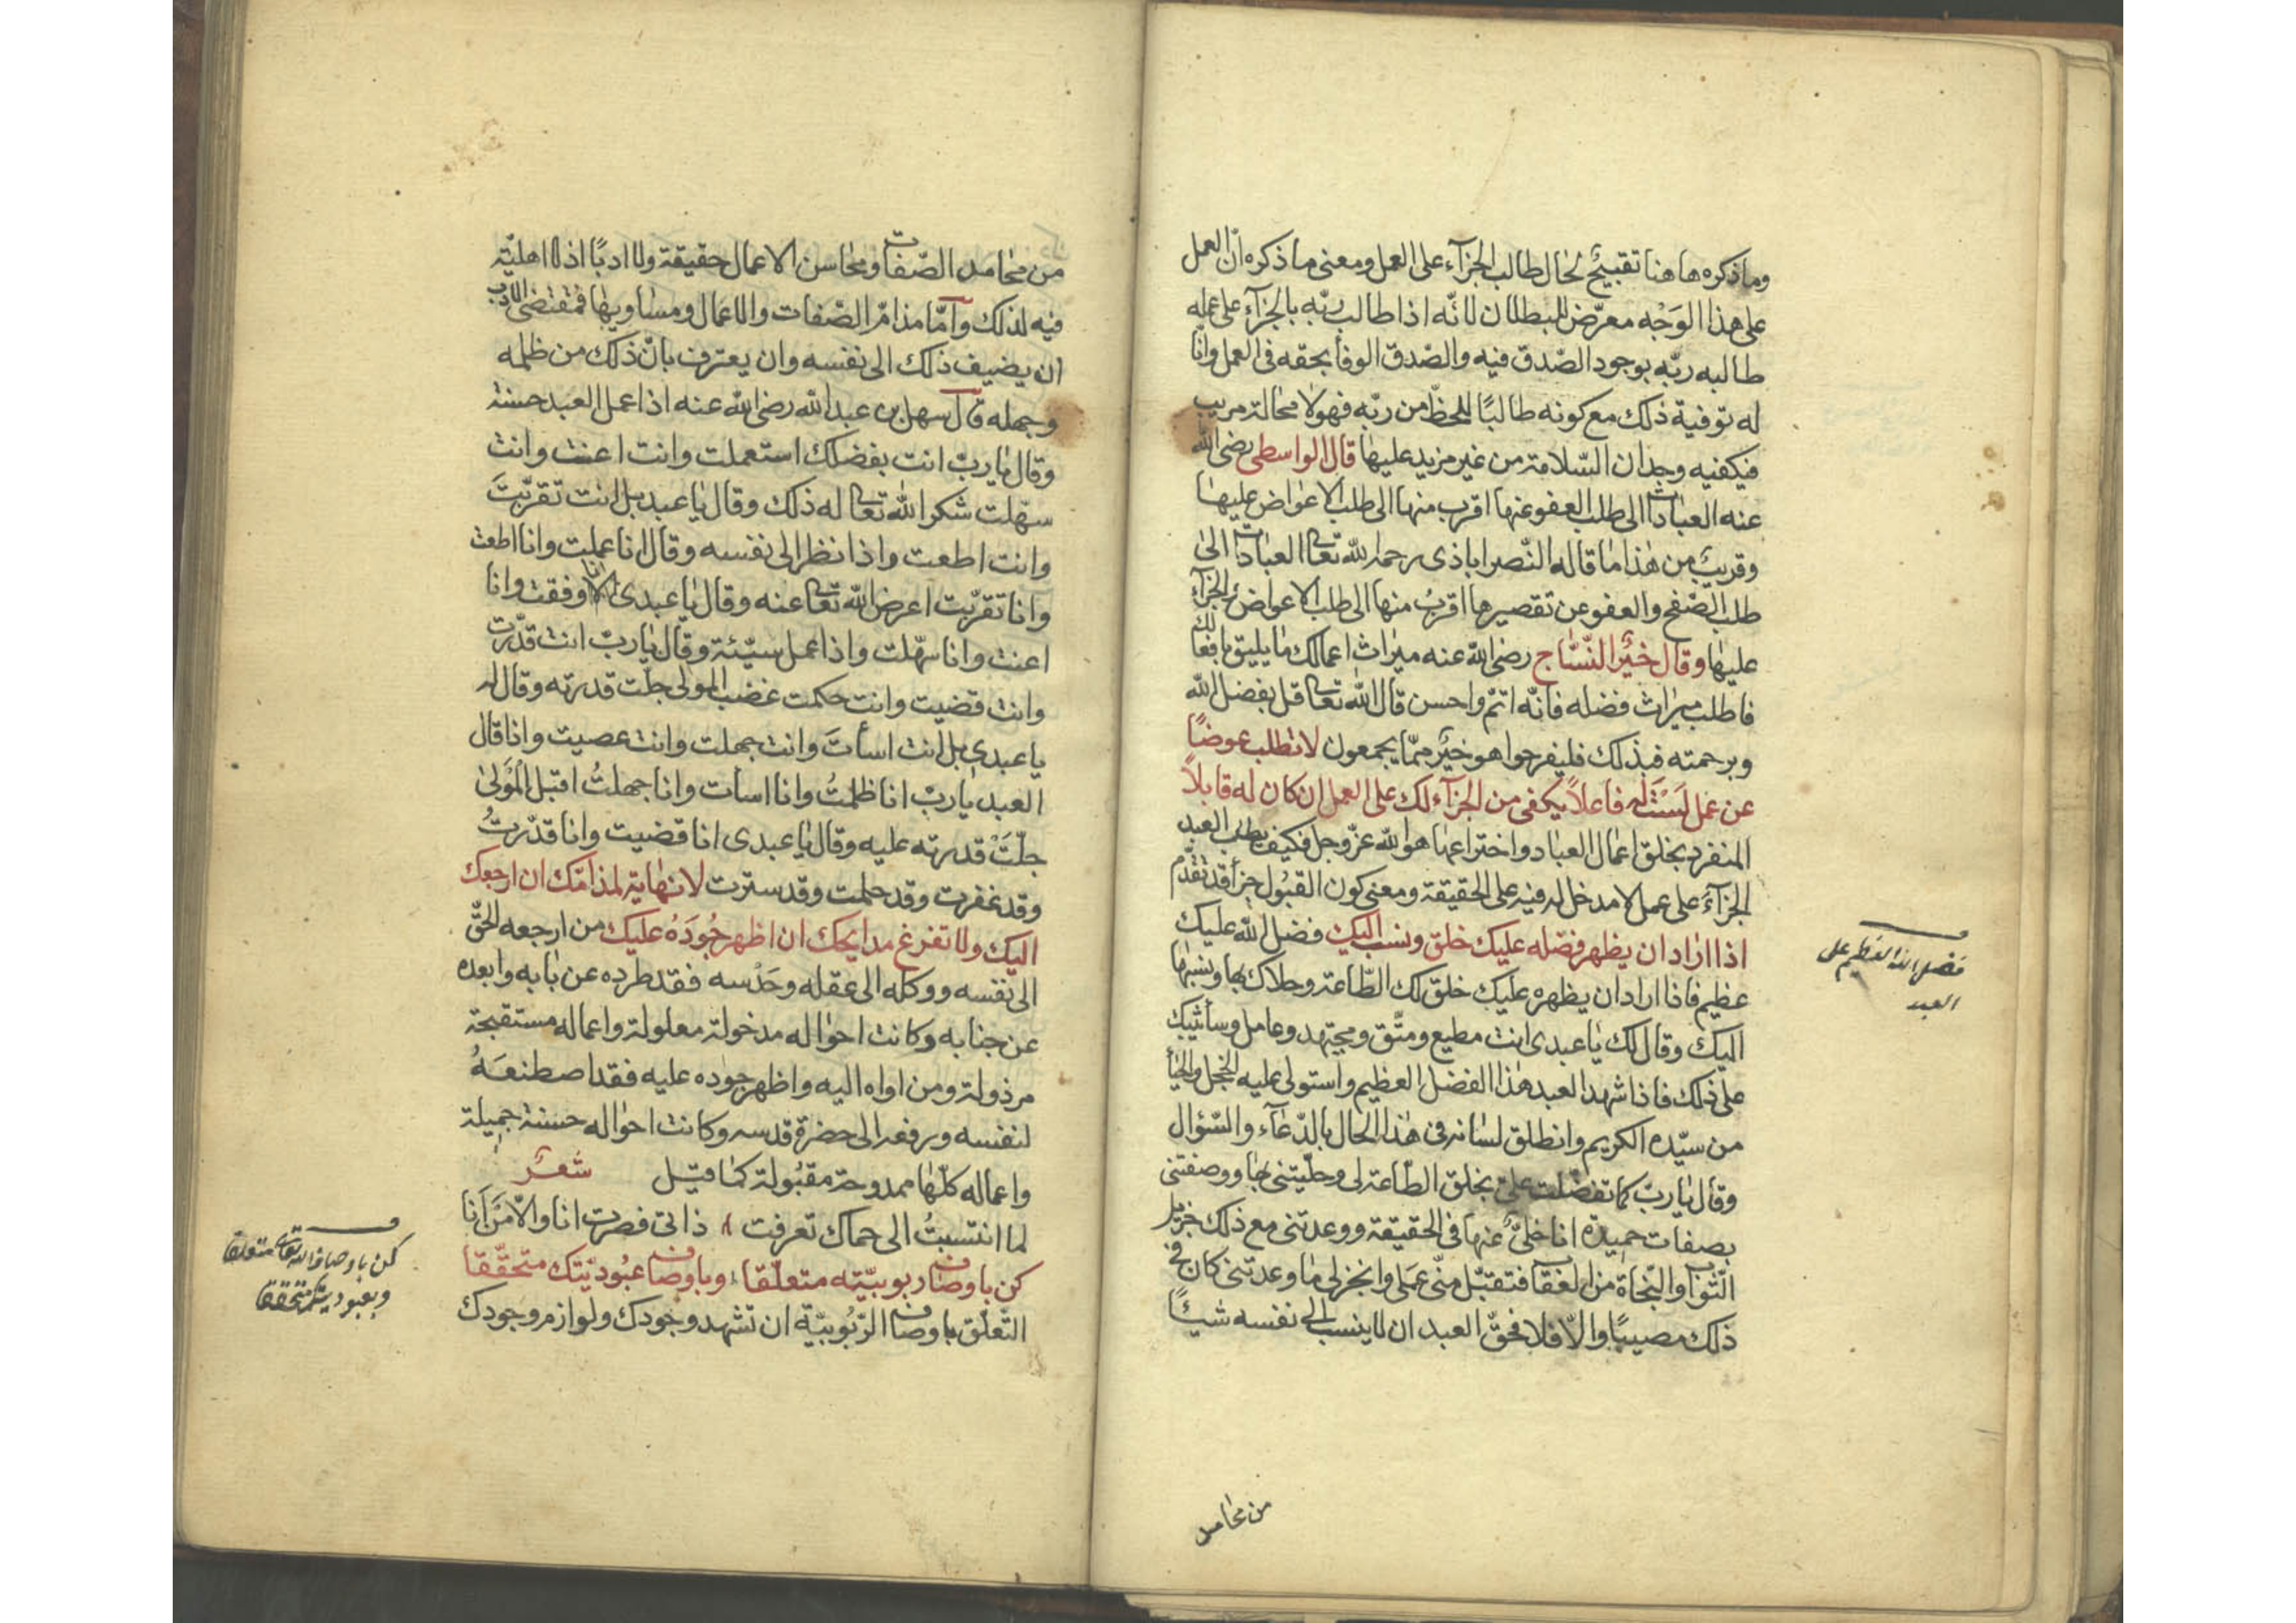 وما ذكره هاهنا تقبيح لحال طالب الجزآء على العمل ومعنى ما ذكره انّ العمل
على هذا الوَجْه معرّض للبطلان لانّه اذا طالب ربّه بالجزآء على عمله
طالبه ربّه بوجود الصّدق فيه والصّدق الوفأ بحقه فى العمل وانّا
له توفية ذلك مع كونه طالبًا للحظّ من ربّه فهو لا محالة مريب
فيكفيه وجدان السّلامة من غير مزيد عليها قال الواسطى رضى الله
عنه العبادات الى طلب العفو عنها اقرب منها الى طلب الاعواض عليها
وقريب من هذا ما قاله النّصراباذى رحمه الله تعالى العبادات الى
طلب الصّفح والعفو عن تقصيرها اقربُ منها الى طلب الاعواض والجزآء
عليها وقال خيْر النّسّاج رضى الله عنه ميراث اعمالك ما يليق بافعالك
فاطلب ميراث فضله فانّه اتمّ واحسن قال الله تعالى قل بفضل الله
وبرحمته فبذلك فليفرحوا هو خيْر ممّا يجمعون لا تطلب عوضًا
عن عمل لسْتَ له فاعلاً يكفى من الجزآء لك على العمل ان كان له قابلاً
المنفرد بخلق اعمال العباد واختراعها هو الله عزّ وجل فكيف يطلب العبد
الجزآء على عمل لا مدخل له فيه على الحقيقة ومعنى كون القبُول جزأ قد تقدّم
اذا اراد ان يظهر فضله عليك خلق ونسب اليك فضل الله عليك
عظيم فاذا اراد ان يظهره عليك خلق لك الطّاعة وحلاك بها ونسبها
اليك وقال لك يا عبدى انت مطيع ومتّق ومجتهد وعامل وسأثيبك
على ذلك فاذا شهد العبد هذا الفضل العظيم واستولى عليه الخجل والحيأ
من سيّده الكريم وانطلق لسانه فى هذا الحال بالدّعآء والسّؤال
وقال يا ربّ كما تفضّلت علىّ بخلق الطّاعة لى وحلّيتنى بها ووصفتنى
بصفات حميدة انا خلىٌّ عنها فى الحقيقة ووعدتنى مع ذلك جزيل
الثّواب والنّجاة من العقاب فتقبّل منّى عملى وانجز لى ما وعدتنى كان فى
ذلك مصيبًا والّا فلا فحقّ العبد ان لا ينسب الى نفسه شيئًا
فضل الله العظيم على
العبد
من محامد
من محامد الصّفات ومحاسن الاعمال حقيقة ولا ادبًا اذ لا اهليّة
فيه لذلك وآمّا مذامّ الصّفات والاعمال ومساويها فمقتضى الادب
ان يضيف ذلك الى نفسه وان يعترف بانّ ذلك من ظلمه
وجهله قال سهل بن عبد الله رضى الله عنه اذا عمل العبد حسنة
وقال يا ربّ انت بفضلك استعملت وانت اعنت وانت
سهّلت شكر الله تعالى له ذلك وقال يا عبد بل انت تقرّبتَ
وانت اطعت واذا نظر الى نفسه وقال انا عملت وانا اطعت
وانا تقرّبت اعرض الله تعالى عنه وقال يا عبدى انا وفقت وانا
اعنت وانا سهّلت واذا عمل سيّئة وقال يا ربّ انت قدّرت
وانت قضيت وانت حكمت غضب المولى جلّت قدرته وقال له
يا عبدى بل انت اسأتَ وانت جهلت وانت عصيت واذا قال
العبد يا ربّ انا ظلمتُ وانا اسأت وانا جهلتُ اقبل الْمَوْلىٰ
جلّتْ قدرته عليه وقال يا عبدى انا قضيت وانا قدّرتُ
وقد غفرت وقد حلمت وقد سترت لا نهاية لمذامّك ان ارجعك
اليك ولا تفرغ مدايحك ان اظهر جُودَهُ عليك من ارجعه الحقّ
الى نفسه ووكله الى عقله وحَدْسه فقد طرده عن بابه وابعده
عن جنابه وكانت احواله مدخولة معلولة واعماله مستقبحة
مرذولة ومن اواه اليه واظهر جوده عليه فقد اصطنعَهُ
لنفسه ورفعه الى حضرة قدسه وكانت احواله حسنة جميلة
واعماله كلّها ممدوحة مقبُولة كما قيل شعر
لما انتسبتُ الى حماك تعرفت ذاتى فصرت انا والّا مَنْ اَنا
كن باوصاف ربوبيّته متعلّقا وباوصاف عبُوديّتك متحقّقا
التّعلّق باوصاف الرّبُوبيّة ان تشهد وجودك ولوازم وجودك
كن باوصاف الله تعالى متعلقا
وبعبوديتك متحققا